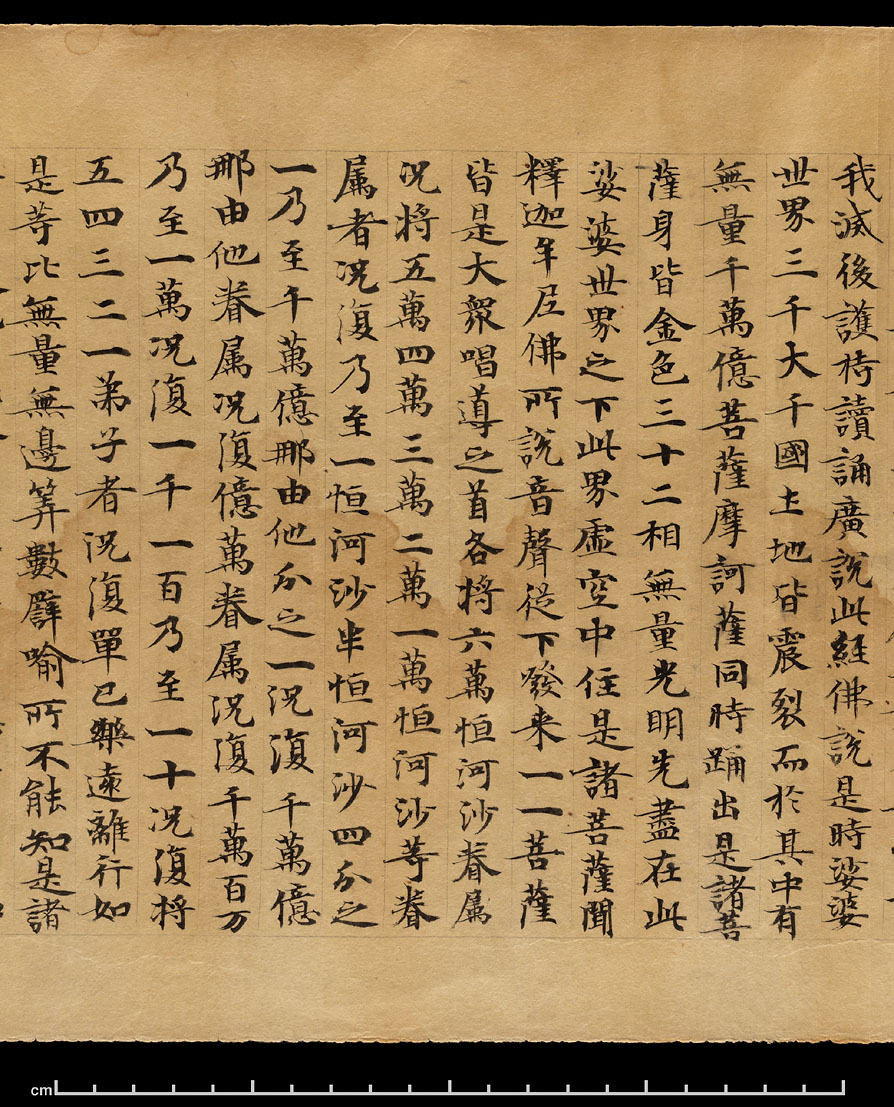 我滅後護持讀誦廣說此経佛說是時娑婆
世界三千大千國土地皆震裂而於其中有
無量千萬億菩薩摩訶薩同時踊出是諸菩
薩身皆金色三十二相無量光明先盡在此
娑婆世界之下此界虛空中住是諸菩薩聞
釋迦牟尼佛所說音聲從下發来一一菩薩
皆是大衆唱導之首各將六萬恒河沙眷属
况將五萬四萬三萬二萬一萬恒河沙等眷
属者况復乃至一恒河沙半恒河沙四分之
一乃至千萬億那由他分之一况復千萬億
那由他眷属况復億萬眷属况復千萬百万
乃至一萬况復一千一百乃至一十况復將
五四三二一弟子者况復單己樂遠離行如
是等比無量無邊筭數譬喻所不能知是諸